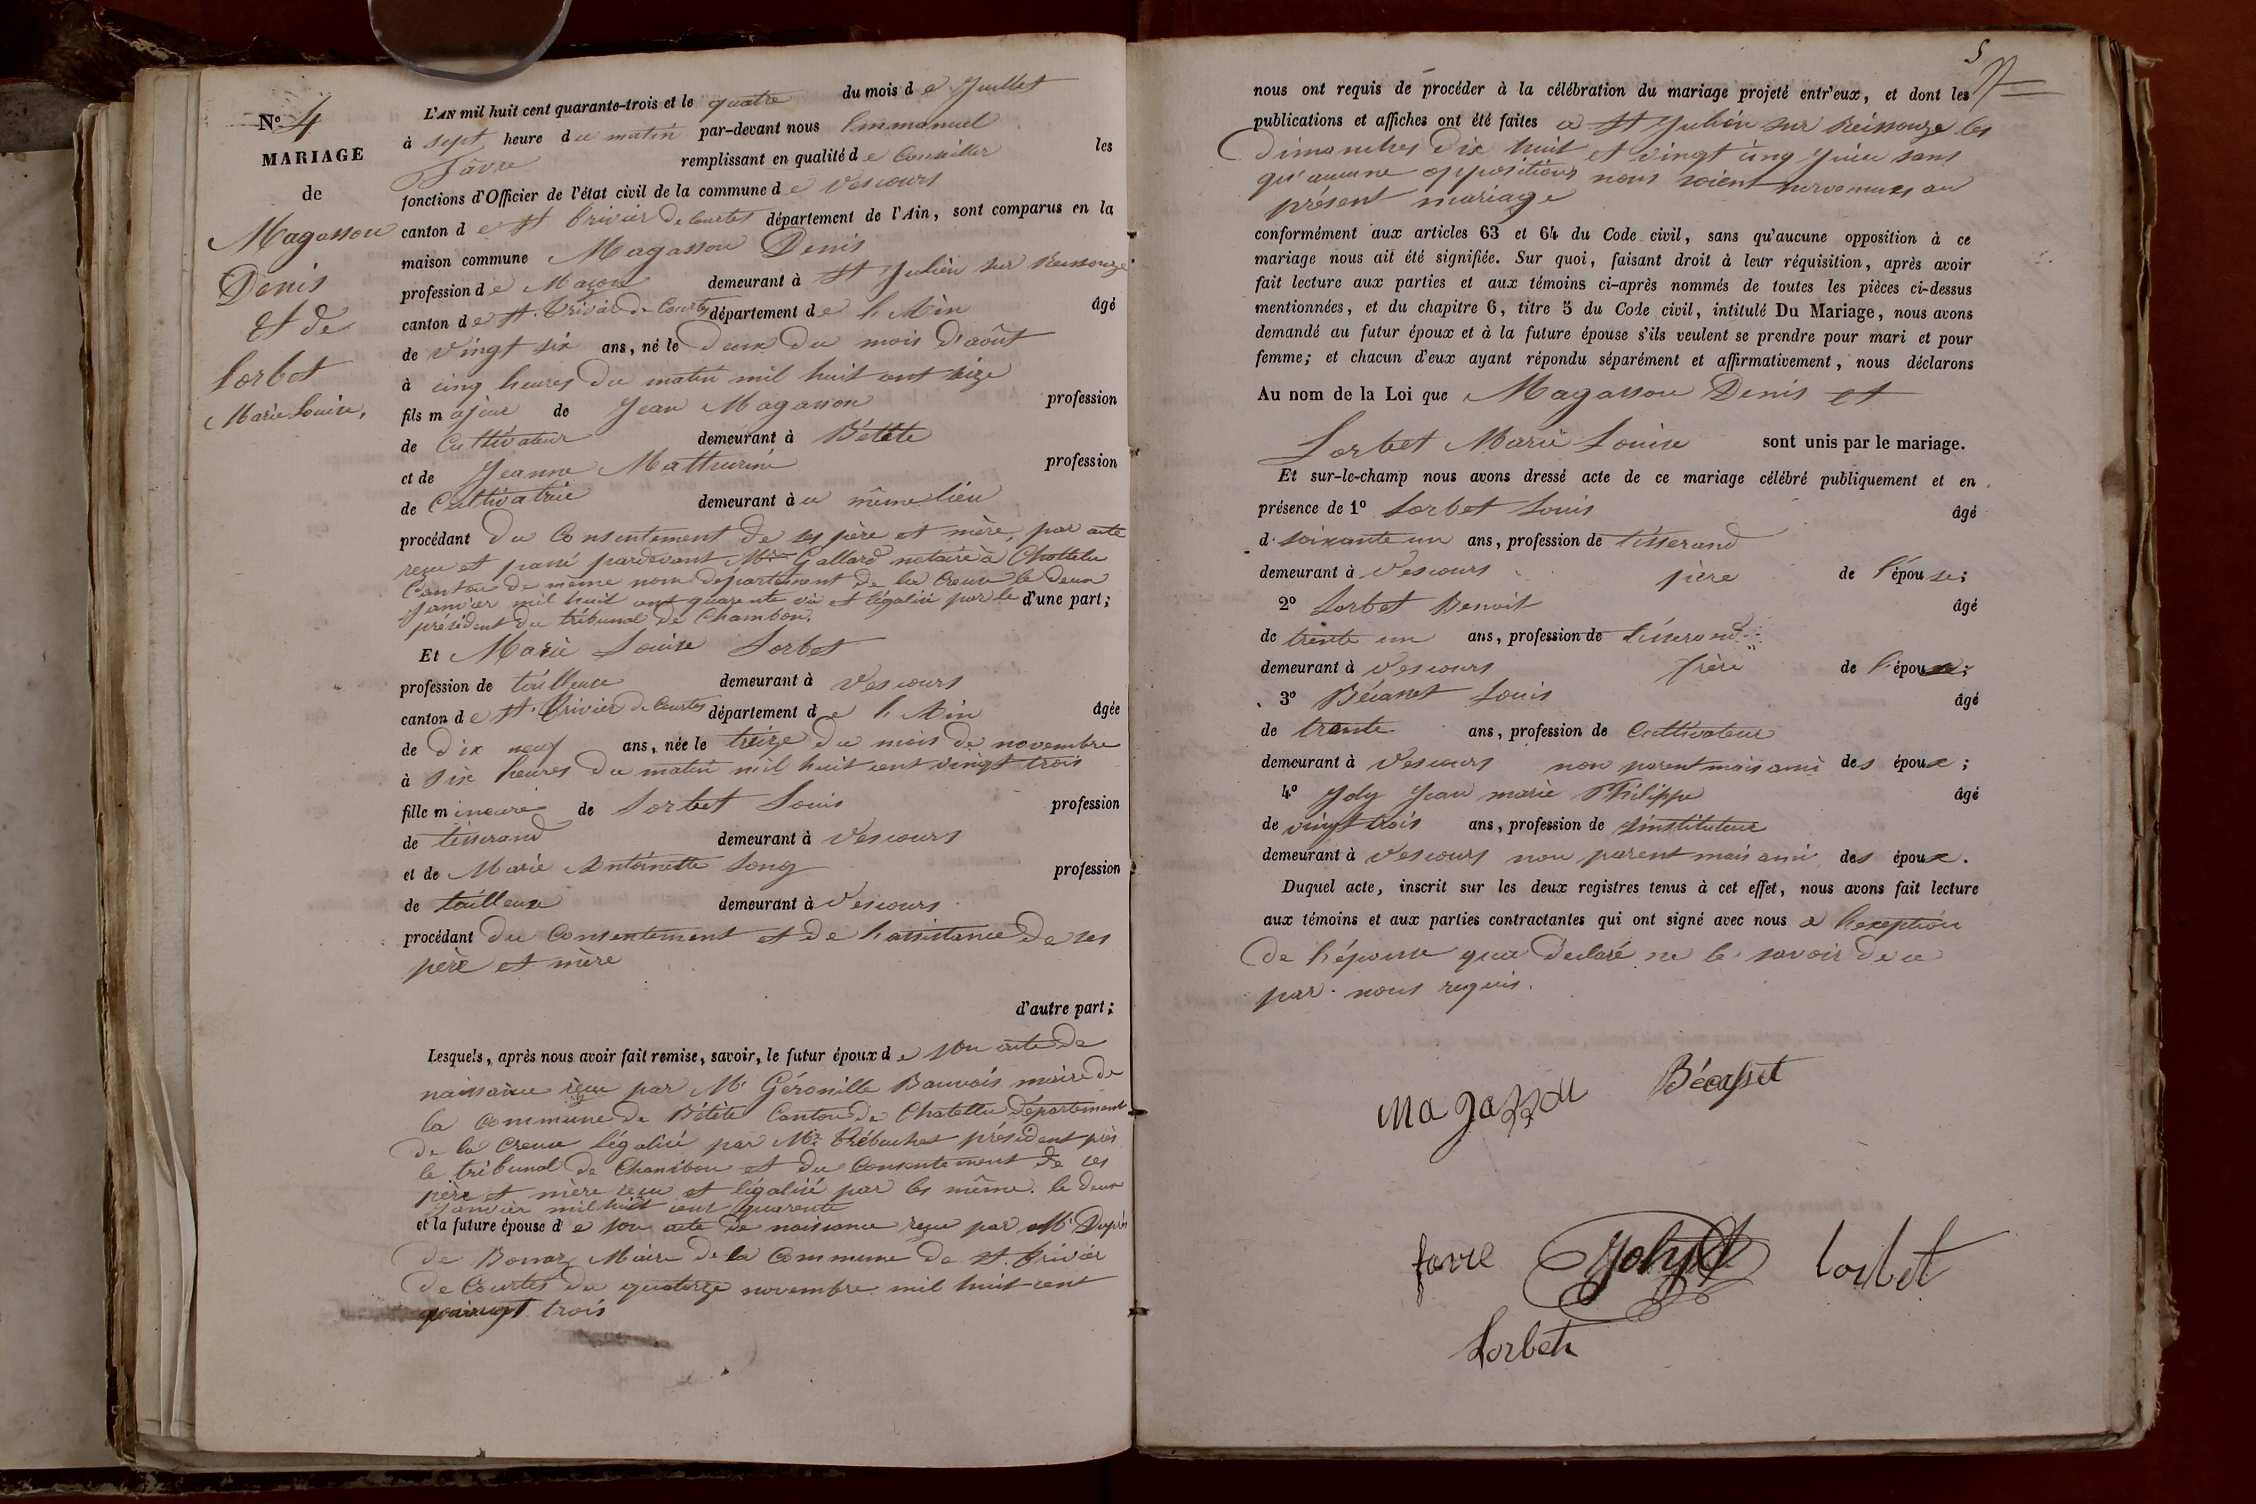 N° 4
MARIAGE
de
Magassou
Denis
et de
Lorbet
Marie Louise,
L'AN mil huit cent quarante-trois et le quatre du mois de Juillet
à sept heure du matin par-devant nous Emmanuel
Favre remplissant en qualité de Conseiller les
fonctions d'Officier de l'état civil de la commune de Vescours
canton de St Trivier de Courtes département de l'Ain, sont comparus en la
maison commune Magassou Denis
profession de Maçon demeurant à St Julien sur Reissouze
canton de St Trivier de Courtes département de l'Ain âgé
de vingt six ans, né le deux du mois d'août
à cinq heures du matin mil huit cent seize
fils majeur de Jean Magassou profession
de Cultivateur demeurant à Bétête
et de Jeanne Mathurine profession
de Cultivatrice demeurant à u même lieu
procédant du consentement de ses père et mère, par acte
reçu et passé pardevant Mtre Gallard notaire à Chattelu
Canton de même nom département de la Creuse le deux
janvier mil huit cent quarante et légalisé par le d'une part;
président du tribunal de Chambon.
Et Marie Louise Lorbet
profession de tailleuse demeurant à Vescours
canton de St Trivier de Courtes département de l'Ain âgée
de dix neuf ans, née le treize du mois de novembre
à six heures du matin mil huit cent vingt trois
fille mineure de Lorbet Louis profession
de tisserand demeurant à Vescours
et de Marie Antoinette Long profession
de tailleuse demeurant à Vescours
procédant du consentement et de l'assistance de ses
père et mère
d'autre part;
Lesquels, après nous avoir fait remise, savoir, le futur époux de son acte de
naissance reçu par Mr Géronille Bauvais maire de
la Commune de Bétête Canton de Chatellu Département
de la Creuse légalisé par Mr Trébuchet président près
le tribunal de Chambon et du consentement de ses
père et mère reçu et légalisé par les même le deux
janvier mil huit cent quarante
et la future épouse de son acte de naissance reçu par Mr Duprés
de Bonnaz Maire de la Commune de St Trivier
de Courtes du quatorze novembre mil huit cent
vingt trois
5
nous ont requis de procéder à la célébration du mariage projeté entr'eux, et dont les
publications et affiches ont été faites à St Julien sur Reissouze les
Dimanches dix huit et vingt cinq Juin sans
qu'aucune oppositions nous soient survenues au
présent mariage
conformément aux articles 63 et 64 du Code civil, sans qu'aucune opposition à ce
mariage nous ait été signifiée. Sur quoi, faisant droit à leur réquisition, après avoir
fait lecture aux parties et aux témoins ci-après nommés de toutes les pièces ci-dessus
mentionnées, et du chapitre 6, titre 5 du Code civil, intitulé Du Mariage, nous avons
demandé au futur époux et à la future épouse s'ils veulent se prendre pour mari et pour
femme; et chacun d'eux ayant répondu séparément et affirmativement, nous déclarons
Au nom de la Loi que Magassou Denis et
Lorbet Marie Louise sont unis par le mariage.
Et sur-le-champ nous avons dressé acte de ce mariage célébré publiquement et en
présence de 1° Lorbet Louis âgé
d. soixante un ans, profession de tisserand
demeurant à Vescours père de l'épouse;
2° Lorbet Benoit âgé
de trente un ans, profession de tisserand
demeurant à Vescours frère de l'épouse;
3° Bécasset Louis âgé
de trente ans, profession de Cultivateur
demeurant à Vescours non parent mais ami des époux;
4° Joly Jean marie Philippe âgé
de vingt trois ans, profession de instituteur
demeurant à Vescours non parent mais ami des époux.
Duquel acte, inscrit sur les deux registres tenus à cet effet, nous avons fait lecture
aux témoins et aux parties contractantes qui ont signé avec nous à l'exception
de l'épouse qui a déclaré ne le savoir de ce
par nous requis.
Magazzou Bécasset
favre Joly Lorbet
Lorbet